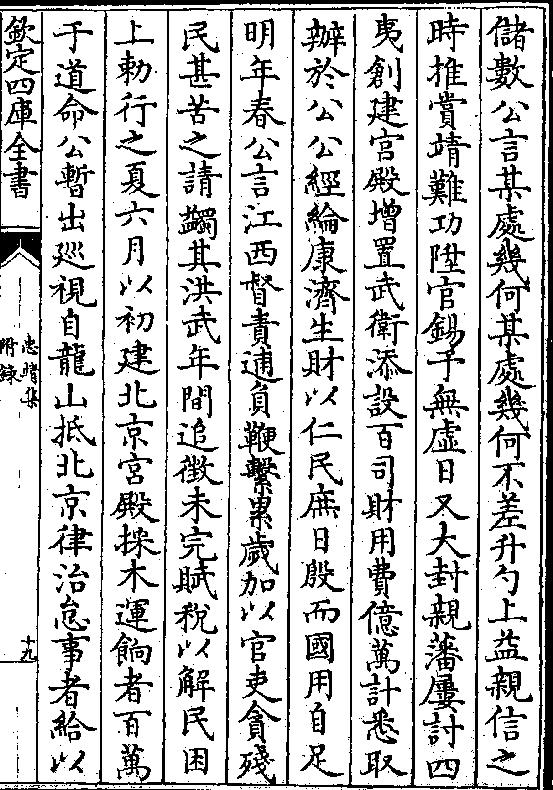 儲數公言某處幾何某處幾何不差升勺上益親信之
時推賞靖難功陞官錫予無虛日又大封親藩屢討四
夷創建宮殿增置武衛添設百司財用費億萬計悉取
辦於公公經綸康濟生財以仁民庶日殷而國用自足
明年春公言江西督責逋負鞭繫累歲加以官吏貪殘
民甚苦之請蠲其洪武年間追徵未完賦稅以解民困
上勅行之夏六月以初建北京宮殿採木運餉者百萬
于道命公暫出廵視自龍山抵北京律治怠事者給以
欽定四庫全書
忠靖集
附錄
十九